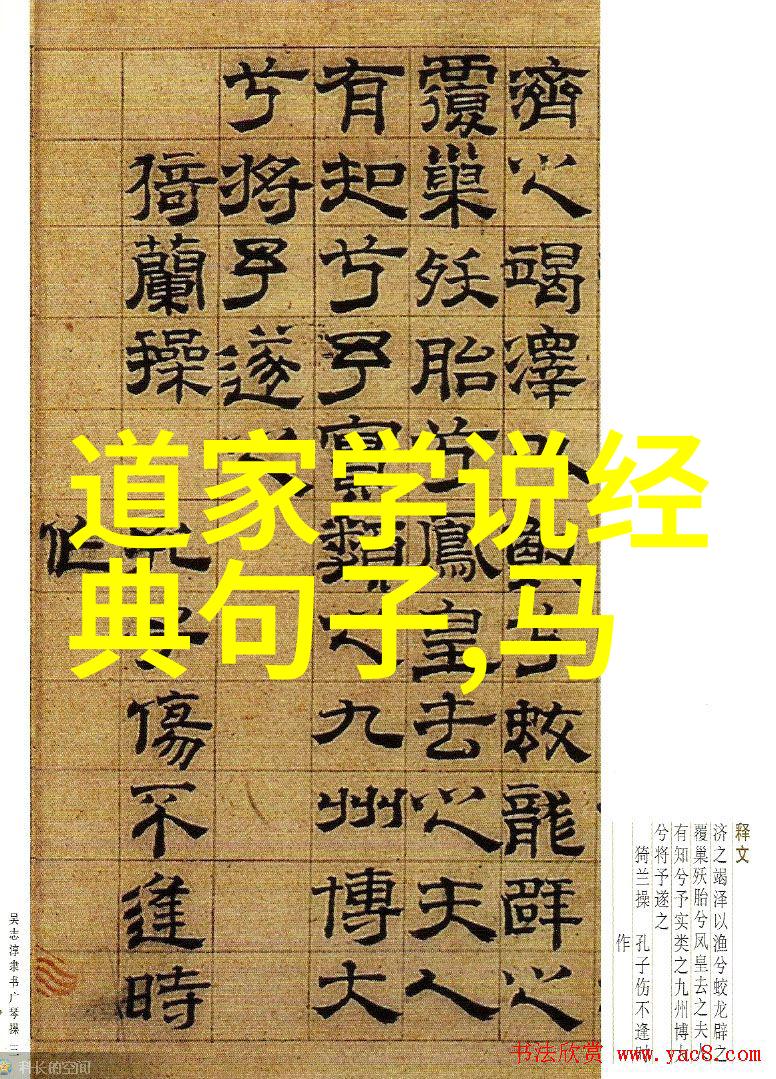 濟之竭澤以𩼪兮蛟龍辟之
覆巢殀胎兮鳳皇去之夫人
有知兮予實類之九州博大
兮將予遂之
猗蘭操
孔子傷不逢時
作
道家学说经
典句子,马
释文
济之竭泽以渔兮蛟龙辟之
覆巢殀胎兮凤皇去之夫人
有知兮予实类之九州博大
兮将予遂之
猗兰操 孔子伤不逢时
作
吴志淳隶书广琴操 三
科长的空间
书法欣赏 www.yac8.com